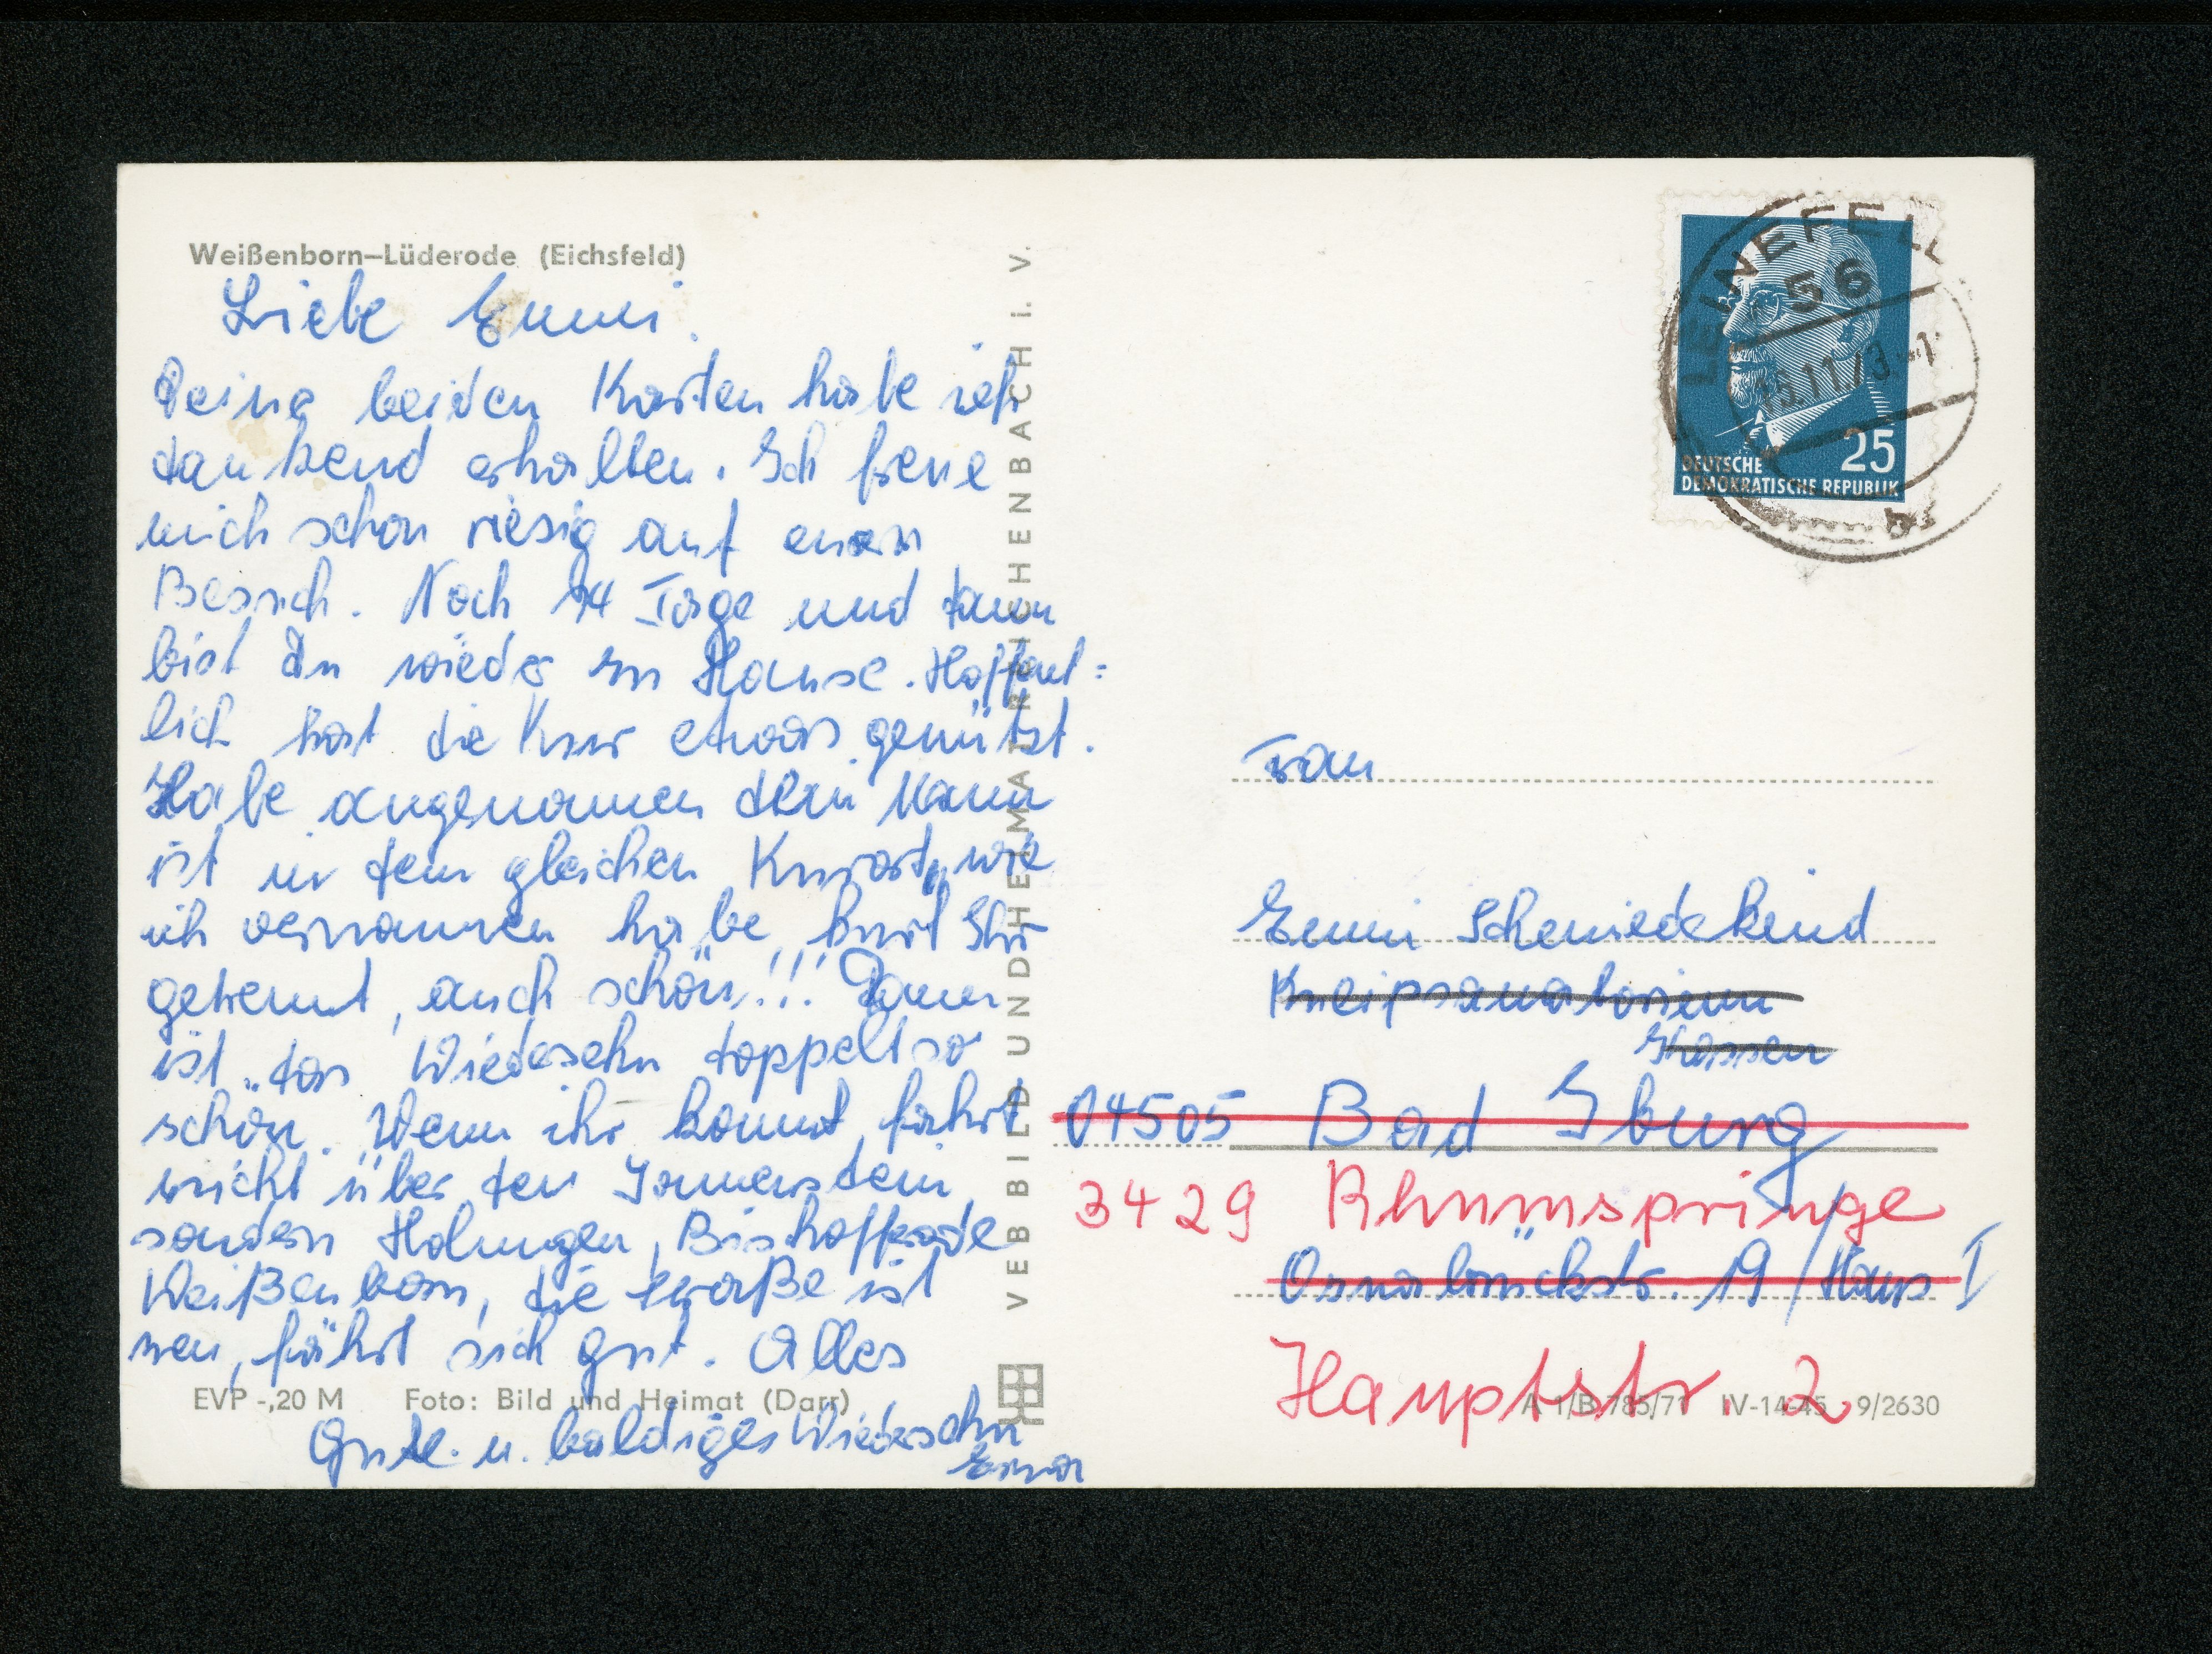 Weißenborn–Lüderode (Eichsfeld)
Liebe Emmi.
Deine beiden Karten habe ich
dankend erhalten. Ich freue
mich schon riesig auf euren
Besuch. Noch 14 Tage und dann
bist Du wieder zu Hause. Hoffent=
lich hat die Kur etwas genützt.
Habe angenomen dein Mann
ist in dem gleichen Kurort, wie
ich vernommen habe, kurt Ihr
getrennt, auch schön!!! Dann
ist das Wiedersehn doppelt so
schön. Wenn ihr kommt, fahrt
nicht über den
sondern Holungen, Bischofferode
Weißenborn, die Straße ist
neu, fährt sich gut. Alles
EVP -,20 M Foto: Bild und Heimat (Darr)
Gute. u. baldiges Wiedersehn
Erna
VEB BILD UND HEIMAT REICHENBACH i. V.
LEINEFELD
56
15.11.73
25
DEUTSCHE
DEMOKRATISCHE REPUBLIK
b
Frau
Emmi Schmiedekind
Kneipsanatorium
04505 Bad Iburg
3429 Rhumspringe
Osnabrückstr. 19/Haus I
Hauptstr. 2
A 1/B 785/71 IV-14-45 9/2630